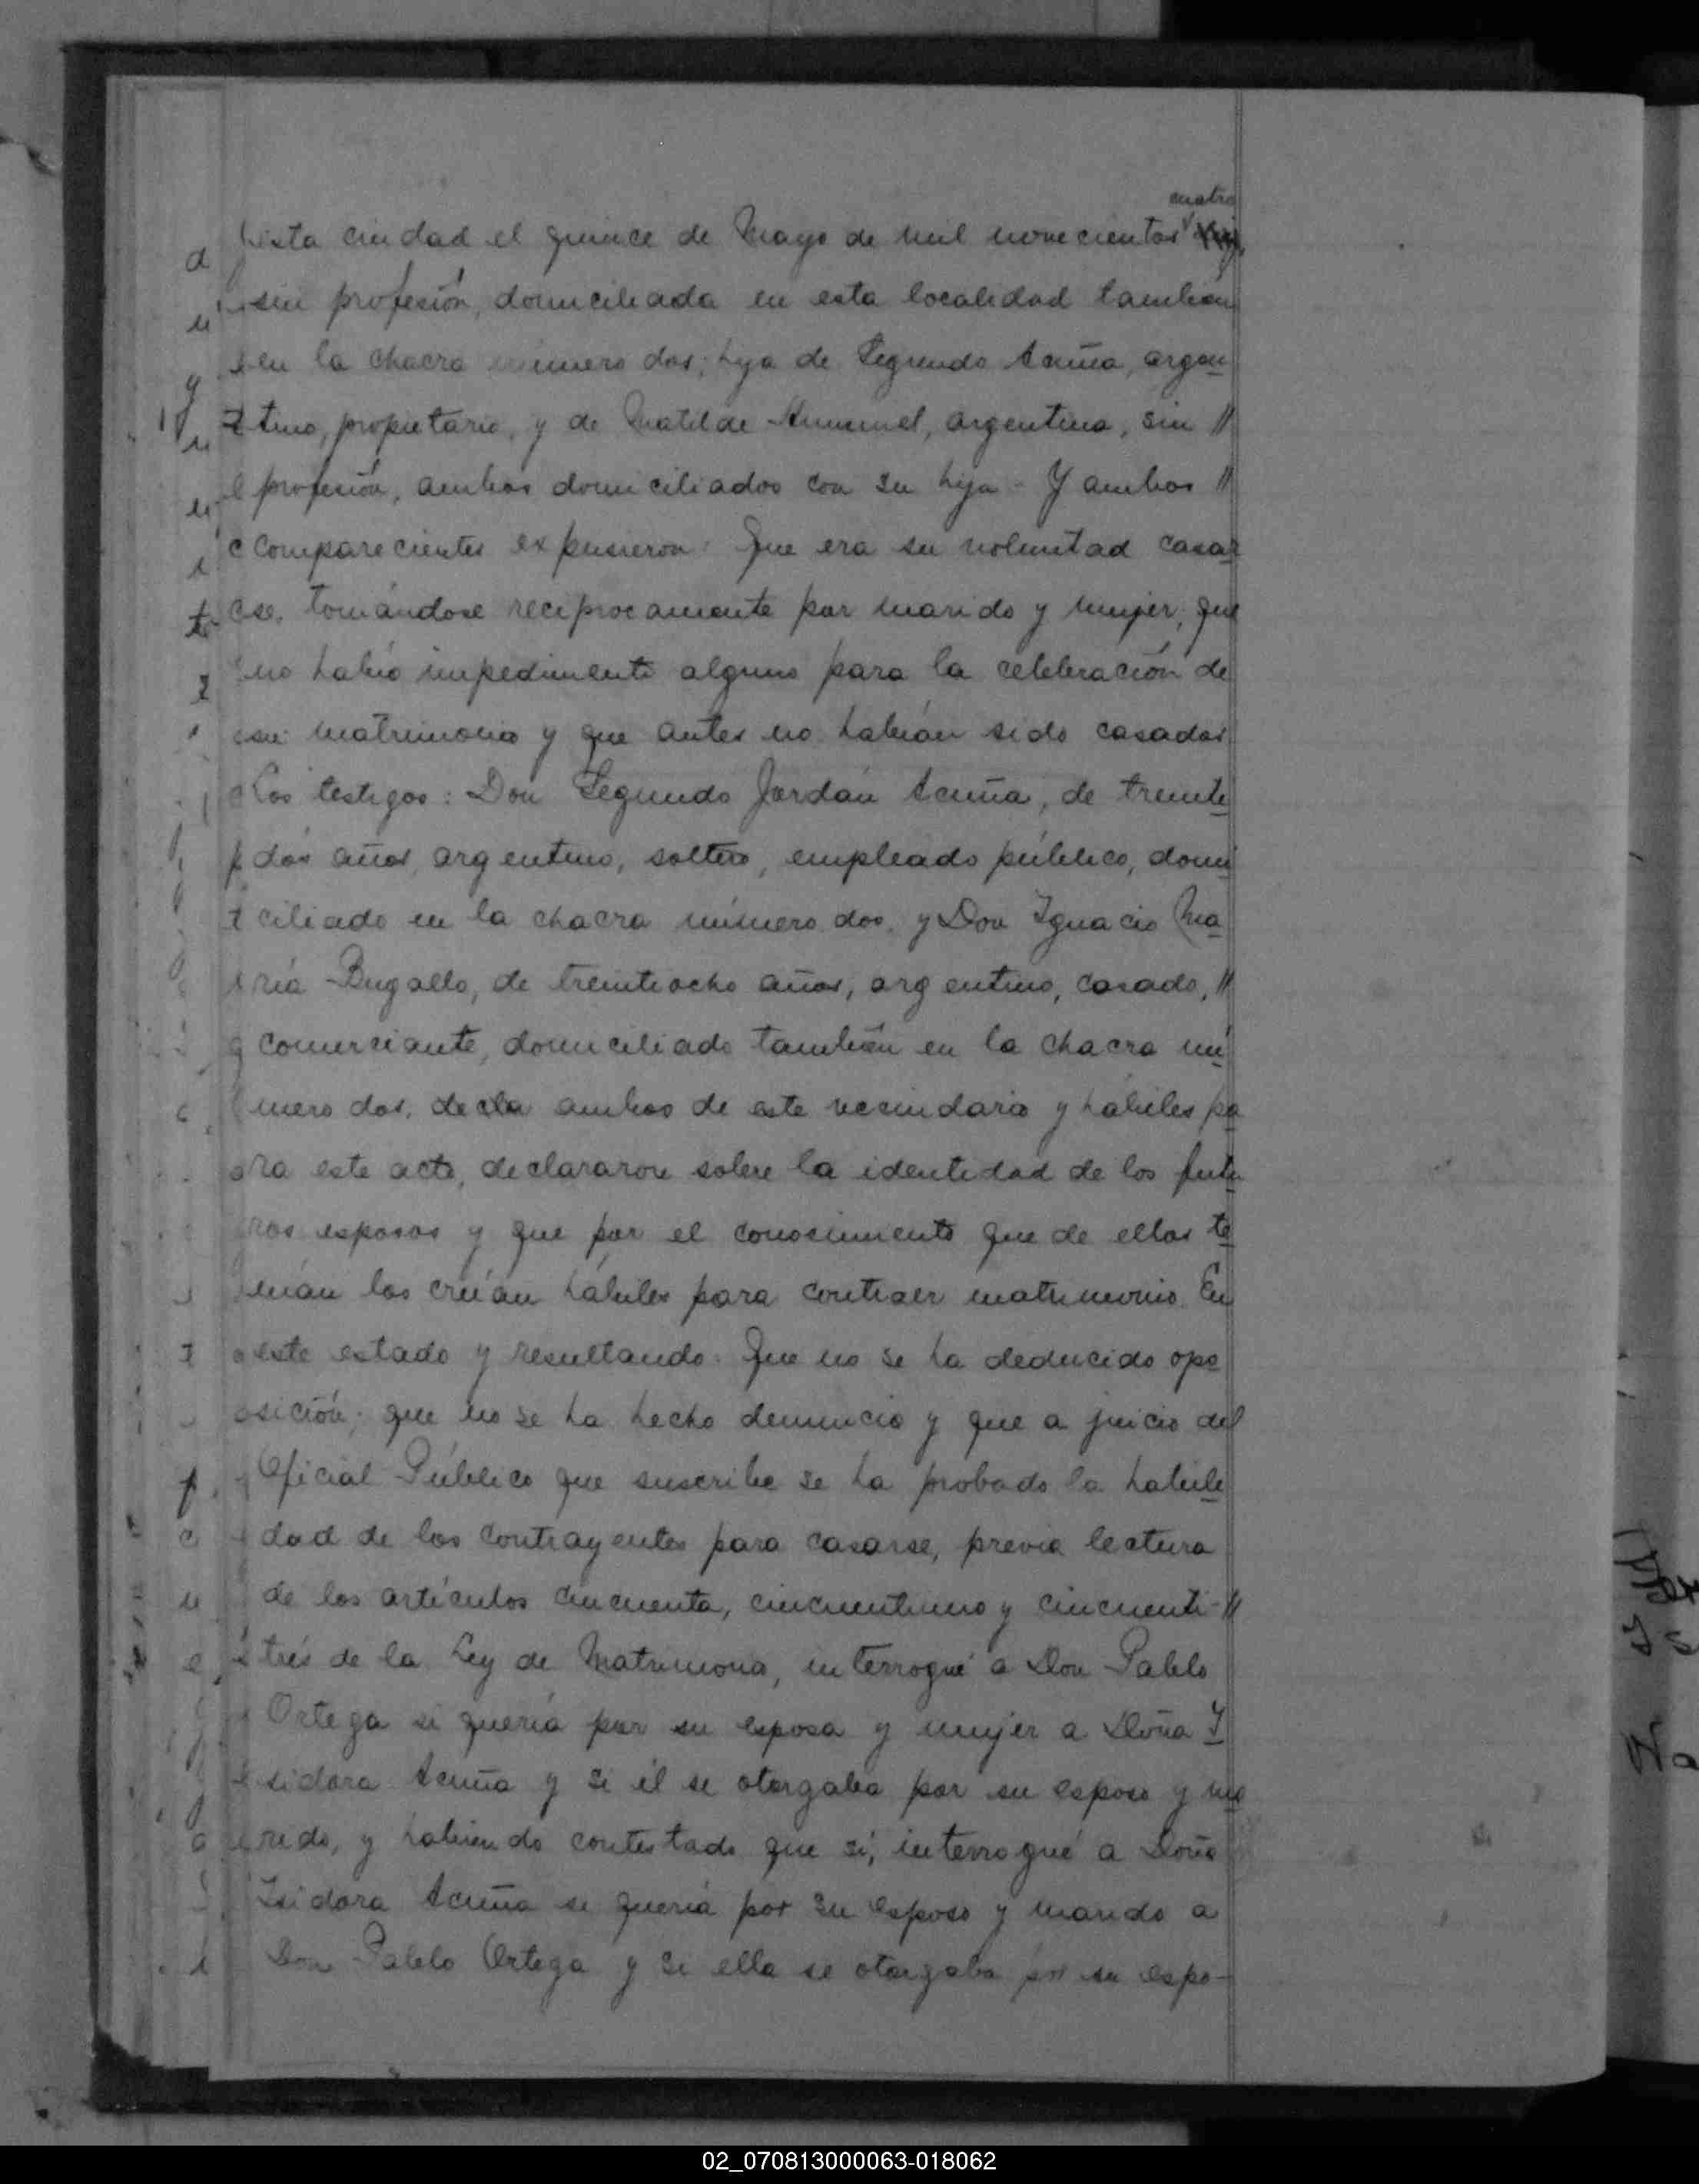 cuatro
esta ciudad el quince de Mayo de mil novecientos
sin profesión, domiciliada en esta localidad también
en la chacra número dos; hija de Segundo Acuña, argen
tino, propietario, y de Matilde argentina, sin //
profesión, ambos domiciliados con su hija - Y ambos //
comparecientes expusieron: Que era su voluntad casar
se, tomándose reciprocamente por marido y mujer; que
no había impedimento alguno para la celebración de
su matrimonio y que antes no habían sido casados
Los testigos: Don Segundo Jordán Acuña, de treinti
dós años, argentino, soltero, empleado público, domi
ciliado en la chacra número dos, y Don Ignacio Ma
ría Bugallo, de treintiocho años, argentino, casado, //
comerciante, domiciliado también en la chacra nú
mero dos, ambos de este vecindario y hábiles pa
ra este acto, declararon sobre la identidad de los futu
ros esposos y que por el conocimiento que de ellos te
nían los creían hábiles para contraer matrimonio. En
este estado y resultando: Que no se ha deducido opo
sición; que no se ha hecho denuncia y que a juicio del
Oficial Público que suscribe se ha probado la habili
dad de los contrayentes para casarse, previa lectura
de los artículos cincuenta, cincuentiuno y cincuenti- //
trés de la Ley de Matrimonio, interrogué a Don Pablo
Ortega si quería por su esposa y mujer a Doña I
sidora Acuña y si él se otorgaba por su esposo y ma
rido, y habiendo contestado que sí, interrogué a Doña
Isidora Acuña si quería por su esposo y marido a
Don Pablo Ortega y si ella se otorgaba por su espo-
02_070813000063-018062